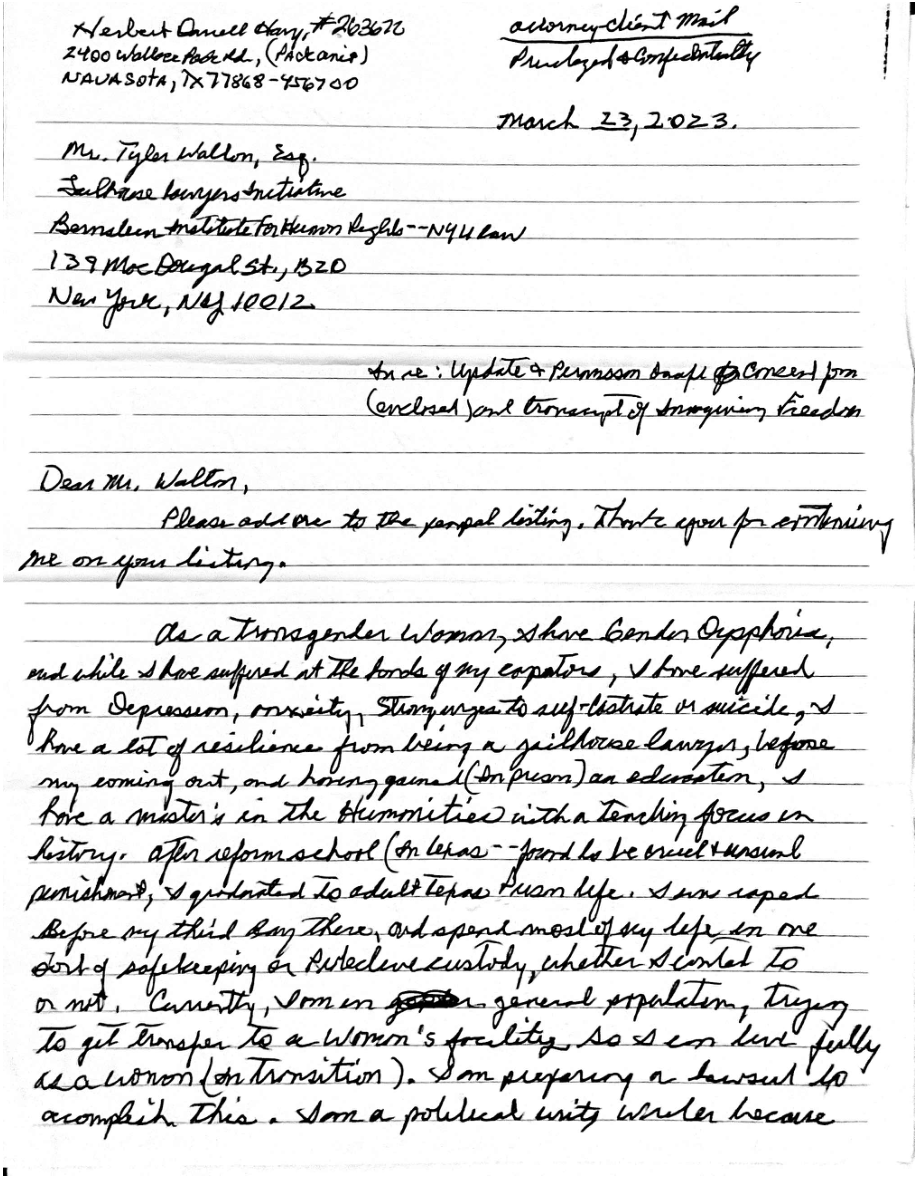 Herbert Darrell Hay, #263672
2400 Wallace Pack Rd., (Pack unit)
NAVASOTA, TX 77868-456700
attorney-client Mail
Privileged & Confidentially
March 23, 2023.
Mr. Tyler Walton, Esq.
Jailhouse Lawyers Initiative
Bernstein Institute For Human Rights--NYU Law
139 MacDougal St., B20
New York, NY 10012
In re: Update & Permission consent form
(enclosed) and transcript of Imagining Freedom
Dear Mr. Walton,
Please add me to the penpal listing. Thank you for continuing
me on your listing.
As a transgender woman, I have Gender Dysphoria,
and while I have suffered at the hands of my captors, I have suffered
from Depression, anxiety, strong urges to self-castrate or suicide, I
have a lot of resilience from being a jailhouse lawyer, before
my coming out, and having gained (In prison) an education, I
have a master's in the Humanities with a teaching focus in
history. After reform school (In Texas--found to be cruel & unsual
punishment, I graduated to adult Texas Prison life. I was raped
Before my third day there, and spend most of my life in one
sort of safekeeping or Protective custody, whether I wanted to
or not. Currently, I am in general population, trying
to get transfer to a Women's facility so I can live fully
as a woman (In Transition). I am preparing a lawsuit to
acomplish this. I am a political writer because